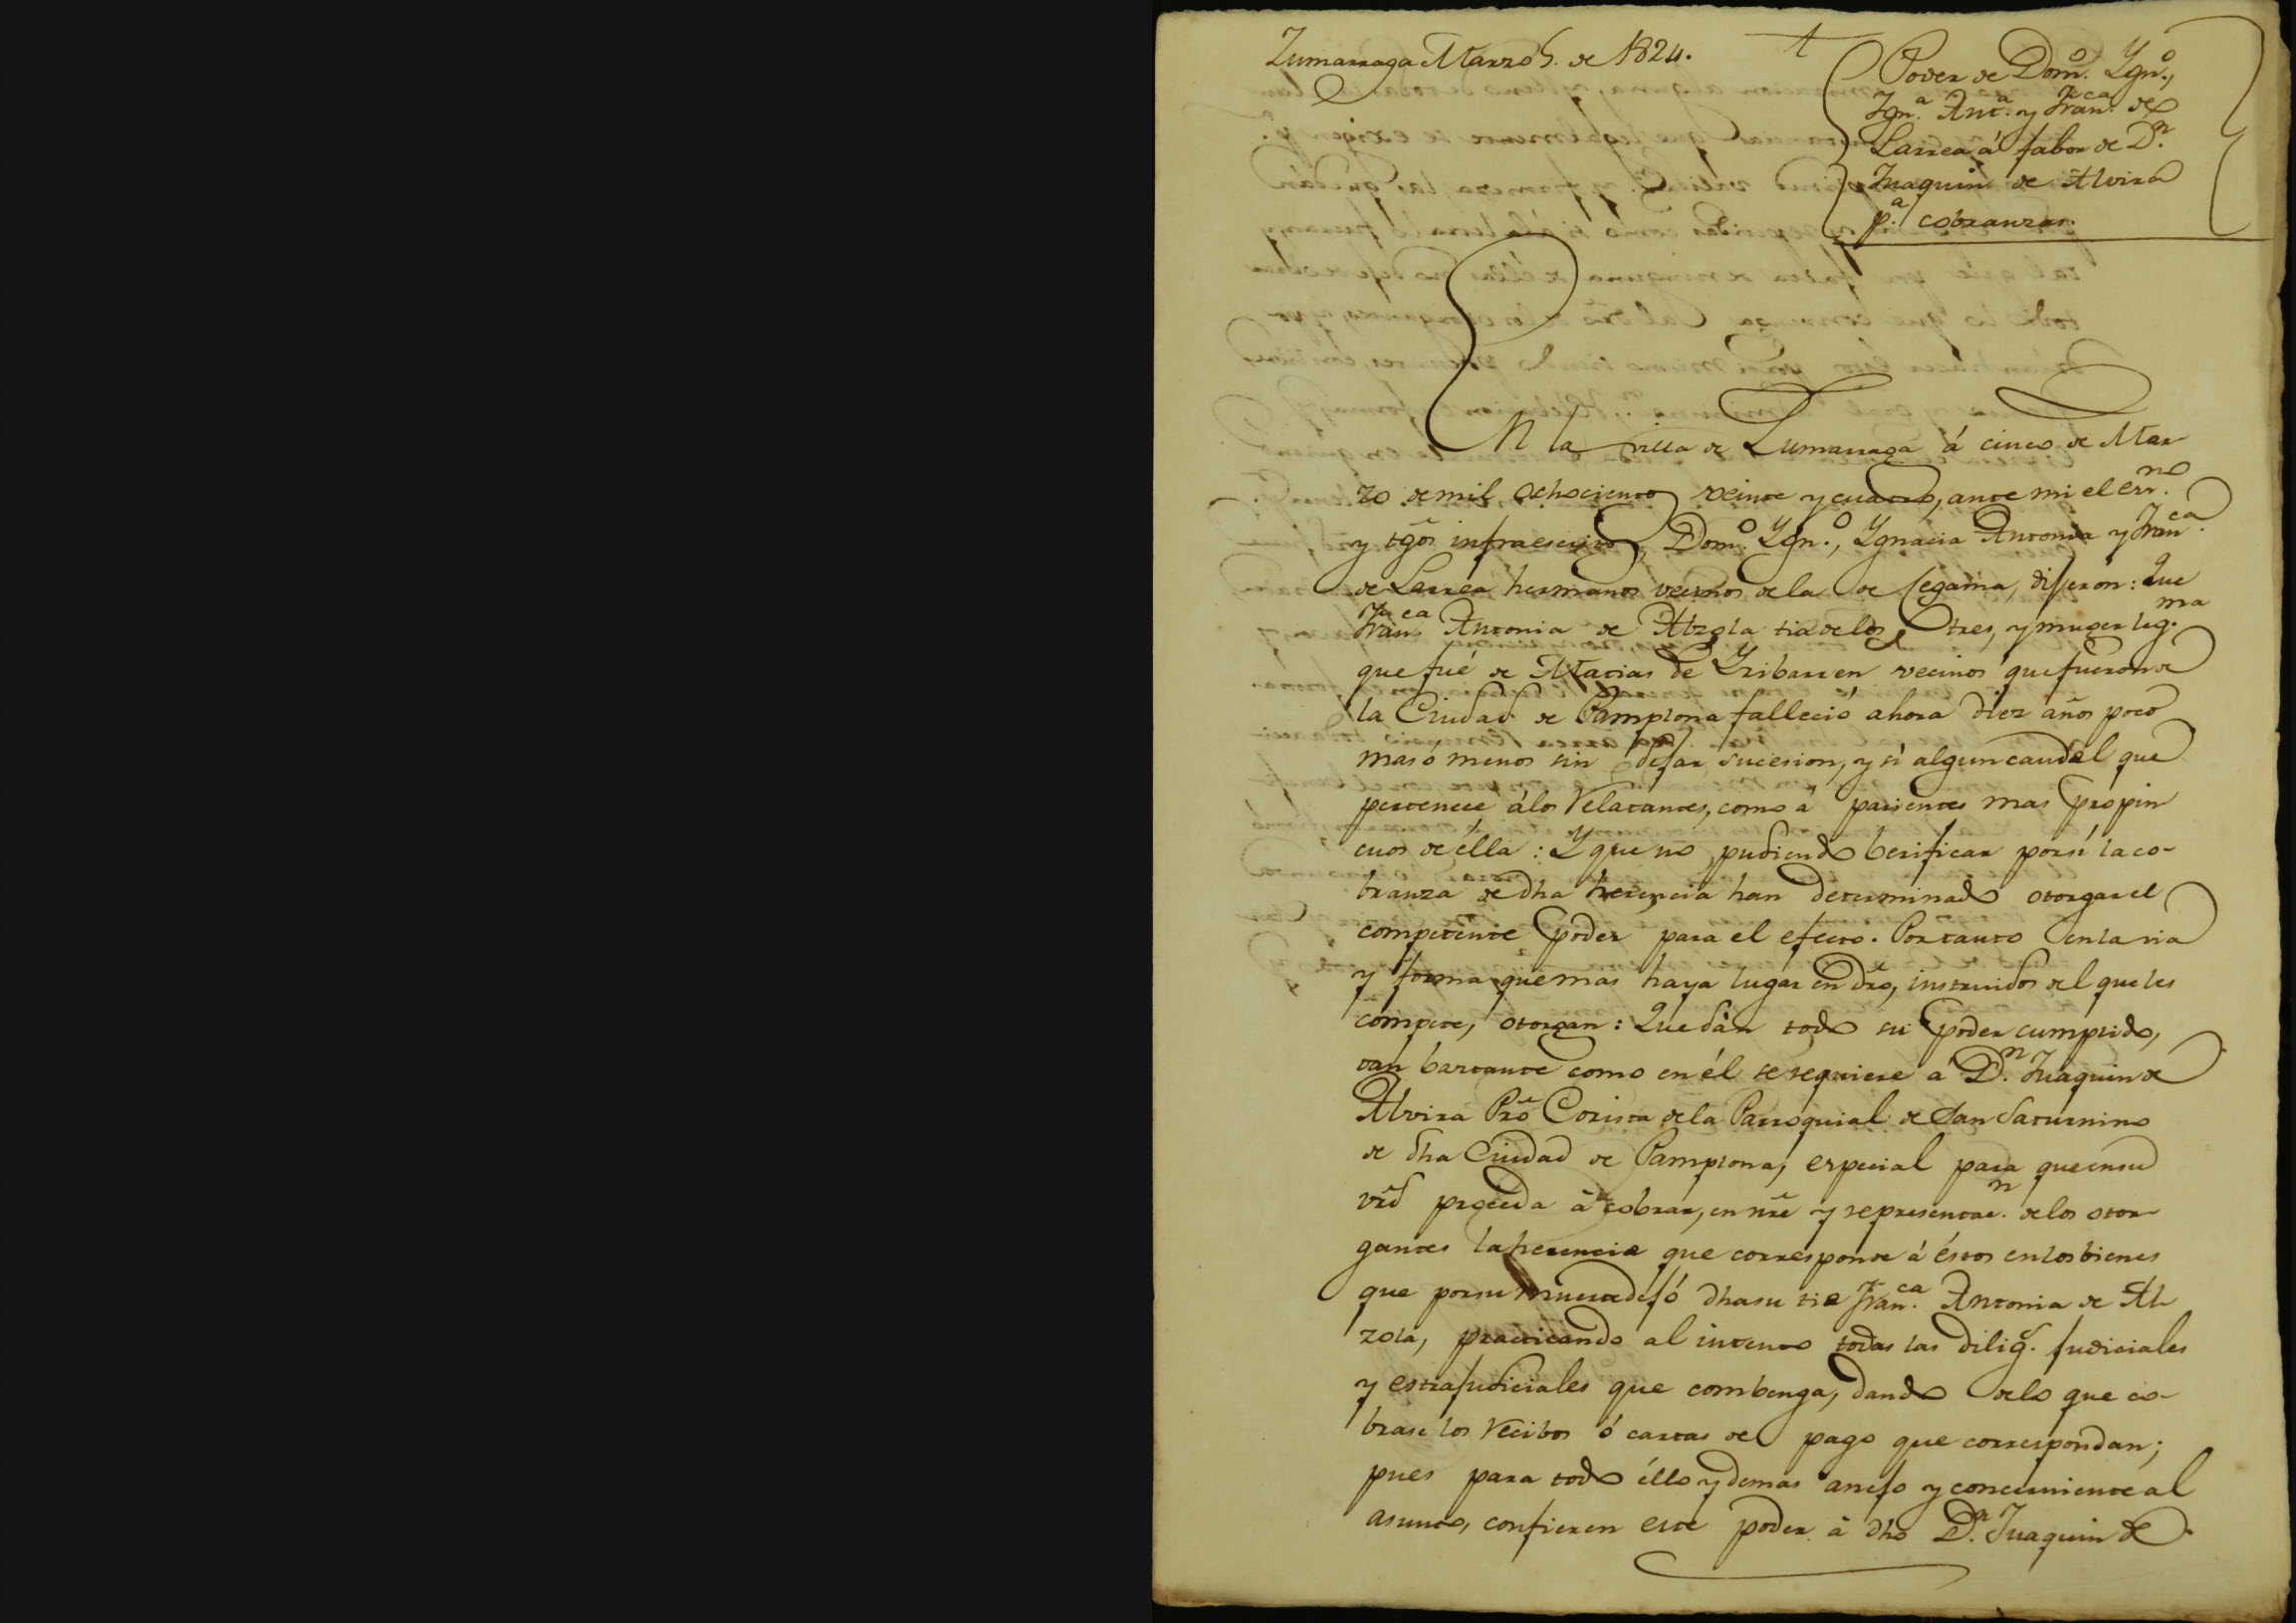 Zumarraga Marzo 5. de 1824.
Poder de Dom.º Ygn.º,
Ygn.ª Ant.ª y Fran.ca de
Larrea á fabor de D.n
Juaquin de Alvira
p.ª cobranzas.
En la villa de Zumarraga á cinco de Mar
zo de mil ochocientos veinte y cuatro, ante mi el esn.no
y tgõs infraescritos, Dom.º Ygn.º, Ygnacia Antonia y Fran.ca
de Larrea hermanos vecinos de la de Cegama, dijeron: Que
Fran.ca Antonia de Alzola tia de los tres, y muger leg.ma
que fué de Matias de Yribarren vecinos que fueron de
la Ciudad de Pamplona falleció ahora diez años poco
mas ó menos sin dejar sucesion, y si algun caudal que
pertenece á los relatantes, como á parientes mas propin
cuos de élla: Y que no pudiendo berificar por sí la co-
branza de dha herencia han determinado otorgar el
competente poder para el efecto. Por tanto en la via
y forma que mas haya lugar en dro, instruidos del que les
compete, otorgan: Que dàn todo su poder cumplido,
tan bastante como en él se requiere á D.n Juaquin de
Alvira Prõ Corista de la Parroquial de San Saturnino
de dha Ciudad de Pamplona, especial para que en su
vrd proceda á cobrar, en nre y representac.n de los otor
gantes la herencia que corresponde á éstos en los bienes
que por su muerte dejó dha su tia Fran.ca Antonia de Al
zola, practicando al intento todas las dilig.s judiciales
y estrajudiciales que combenga, dando de lo que co-
brase los recibos ó cartas de pago que correspondan;
pues para todo éllo y demas anejo y concerniente al
asunto, confieren este poder á dho D.n Juaquin de